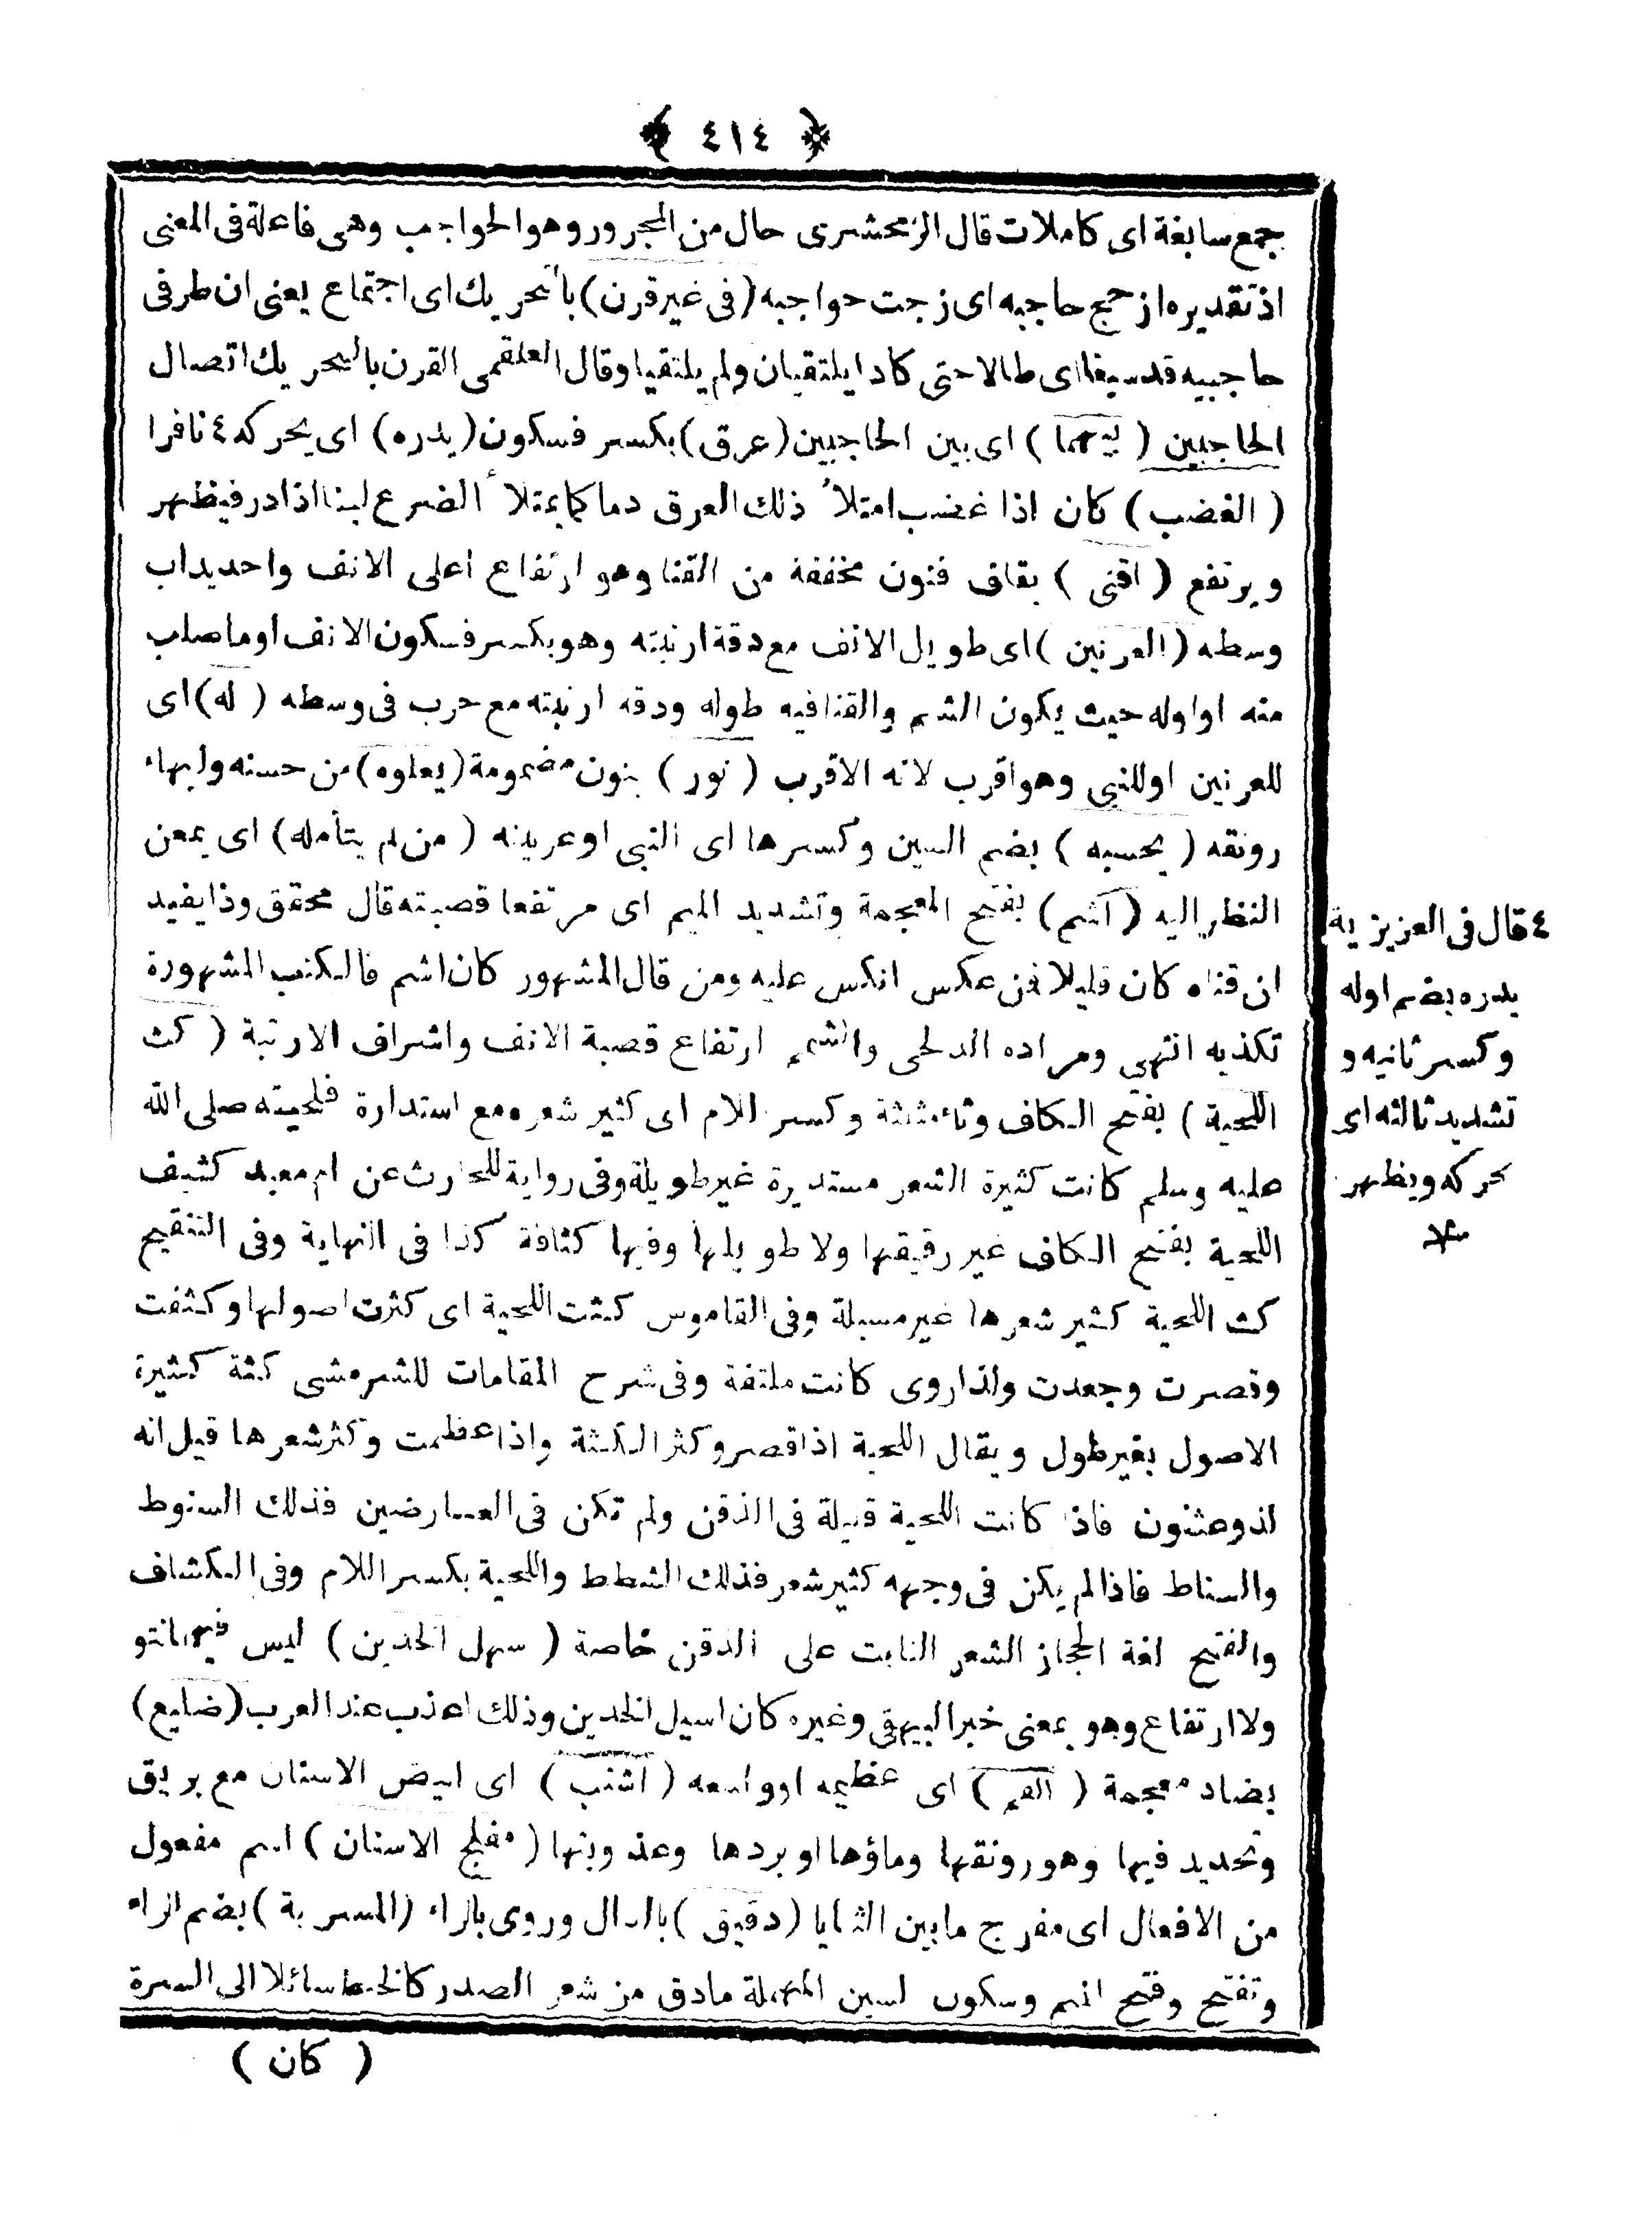 ﴿ ٤١٤ ﴾
جمع سابغة اى كاملات قال الزمحشرى حال من المجرور وهو الحواجب وهى فاعلة فى المعنى
اذ تقديره ازجج حاجبه اى زجت حواجبه (فى غير قرن) بالتحريك اى اجتماع يعنى ان طرفى
حاجبيه قد سبغا اى طالا حتى كادا يلتقيان ولم يلتقيا وقال العلقمى القرن بالتحريك اتصال
الحاجبين (بينهما) اى بين الحاجبين (عرق) بكسر فسكون (يدره) اى يحركه ٤ نافرا
(الغضب) كان اذا غضب امتلأ ذلك العرق دما كما يمتلأ الضرع لبنا اذا در فيظهر
ويرتفع (اقنى) بقاف فنون مخففة من القنا وهو ارتفاع اعلى الانف واحديداب
وسطه (العرنين) اى طويل الانف مع دقة ارنبته وهو بكسر فسكون الانف او ما صلب
منه او اوله حيث يكون الشم والقنا فيه طوله ودقه ارنبته مع حرب فى وسطه (له) اى
للعرنين او للنبى وهو اقرب لانه الاقرب (نور) بنون مضمومة (يعلوه) من حسنه ولبهاء
رونقه (يحسبه) بضم السين وكسرها اى النبى او عرينه (من لم يتأمله) اى يمعن
النظر اليه (اشم) بفتح المعجمة وتشديد الميم اى مرتفعا قصبته قال محقق وذا يفيد
ان قناه كان قليلا فمن عكس انكس عليه ومن قال المشهور كان اشم فالكتب المشهورة
تكذبه انتهى ومراده الدلجى والشمم ارتفاع قصبة الانف واشراف الارنبة (كث
اللحية) بفتح الكاف وثاء مثلثة وكسر اللام اى كثير شعره مع استدارة فلحيته صلى الله
عليه وسلم كانت كثيرة الشعر مستديرة غير طويلة وفى رواية للحارث عن ام معبد كثيف
اللحية بفتح الكاف غير رقيقها ولا طويلها وفيها كثافة كذا فى النهاية وفى التنقيح
كث اللحية كثير شعرها غير مسبلة وفى القاموس كثت اللحية اى كثرت اصولها وكثفت
وقصرت وجعدت ولذا روى كانت ملتفة وفى شرح المقامات للشرمشى كثة كثيرة
الاصول بغير طول ويقال اللحية اذا قصر وكثر الكثة واذا عظمت وكثر شعرها قيل انه
لذو عثنون فاذا كانت اللحية قليلة فى الذقن ولم تكن فى العارضين فذلك السنوط
والسناط فاذا لم يكن فى وجهه كثير شعر فذلك الشطط واللحية بكسر اللام وفى الكشاف
والفتح لغة الحجاز الشعر النابت على الذقن خاصة (سهل الخدين) ليس فيهما نتو
ولا ارتفاع وهو بمعنى خبر البيهقى وغيره كان اسيل الخدين وذلك اعذب عند العرب (ضليع)
بضاد معجمة (الفم) اى عظيمه او واسعه (اشنب) اى ابيض الاسنان مع بريق
وتحديد فيها وهو رونقها وماؤها او بردها وعذوبتها (مفلج الاسنان) اسم مفعول
من الافعال اى مفرج ما بين الثنايا (دقيق) بالدال وروى بالراء (المسربة) بضم الراء
وتفتح وفتح الميم وسكون لسين المهملة مادق من شعر الصدر كالخط سائلا الى السرة
(كان)
٤ قال فى العزيزية
يدره بضم اوله
وكسر ثانيه و
تشديد ثالثه اى
يحركه ويظهر